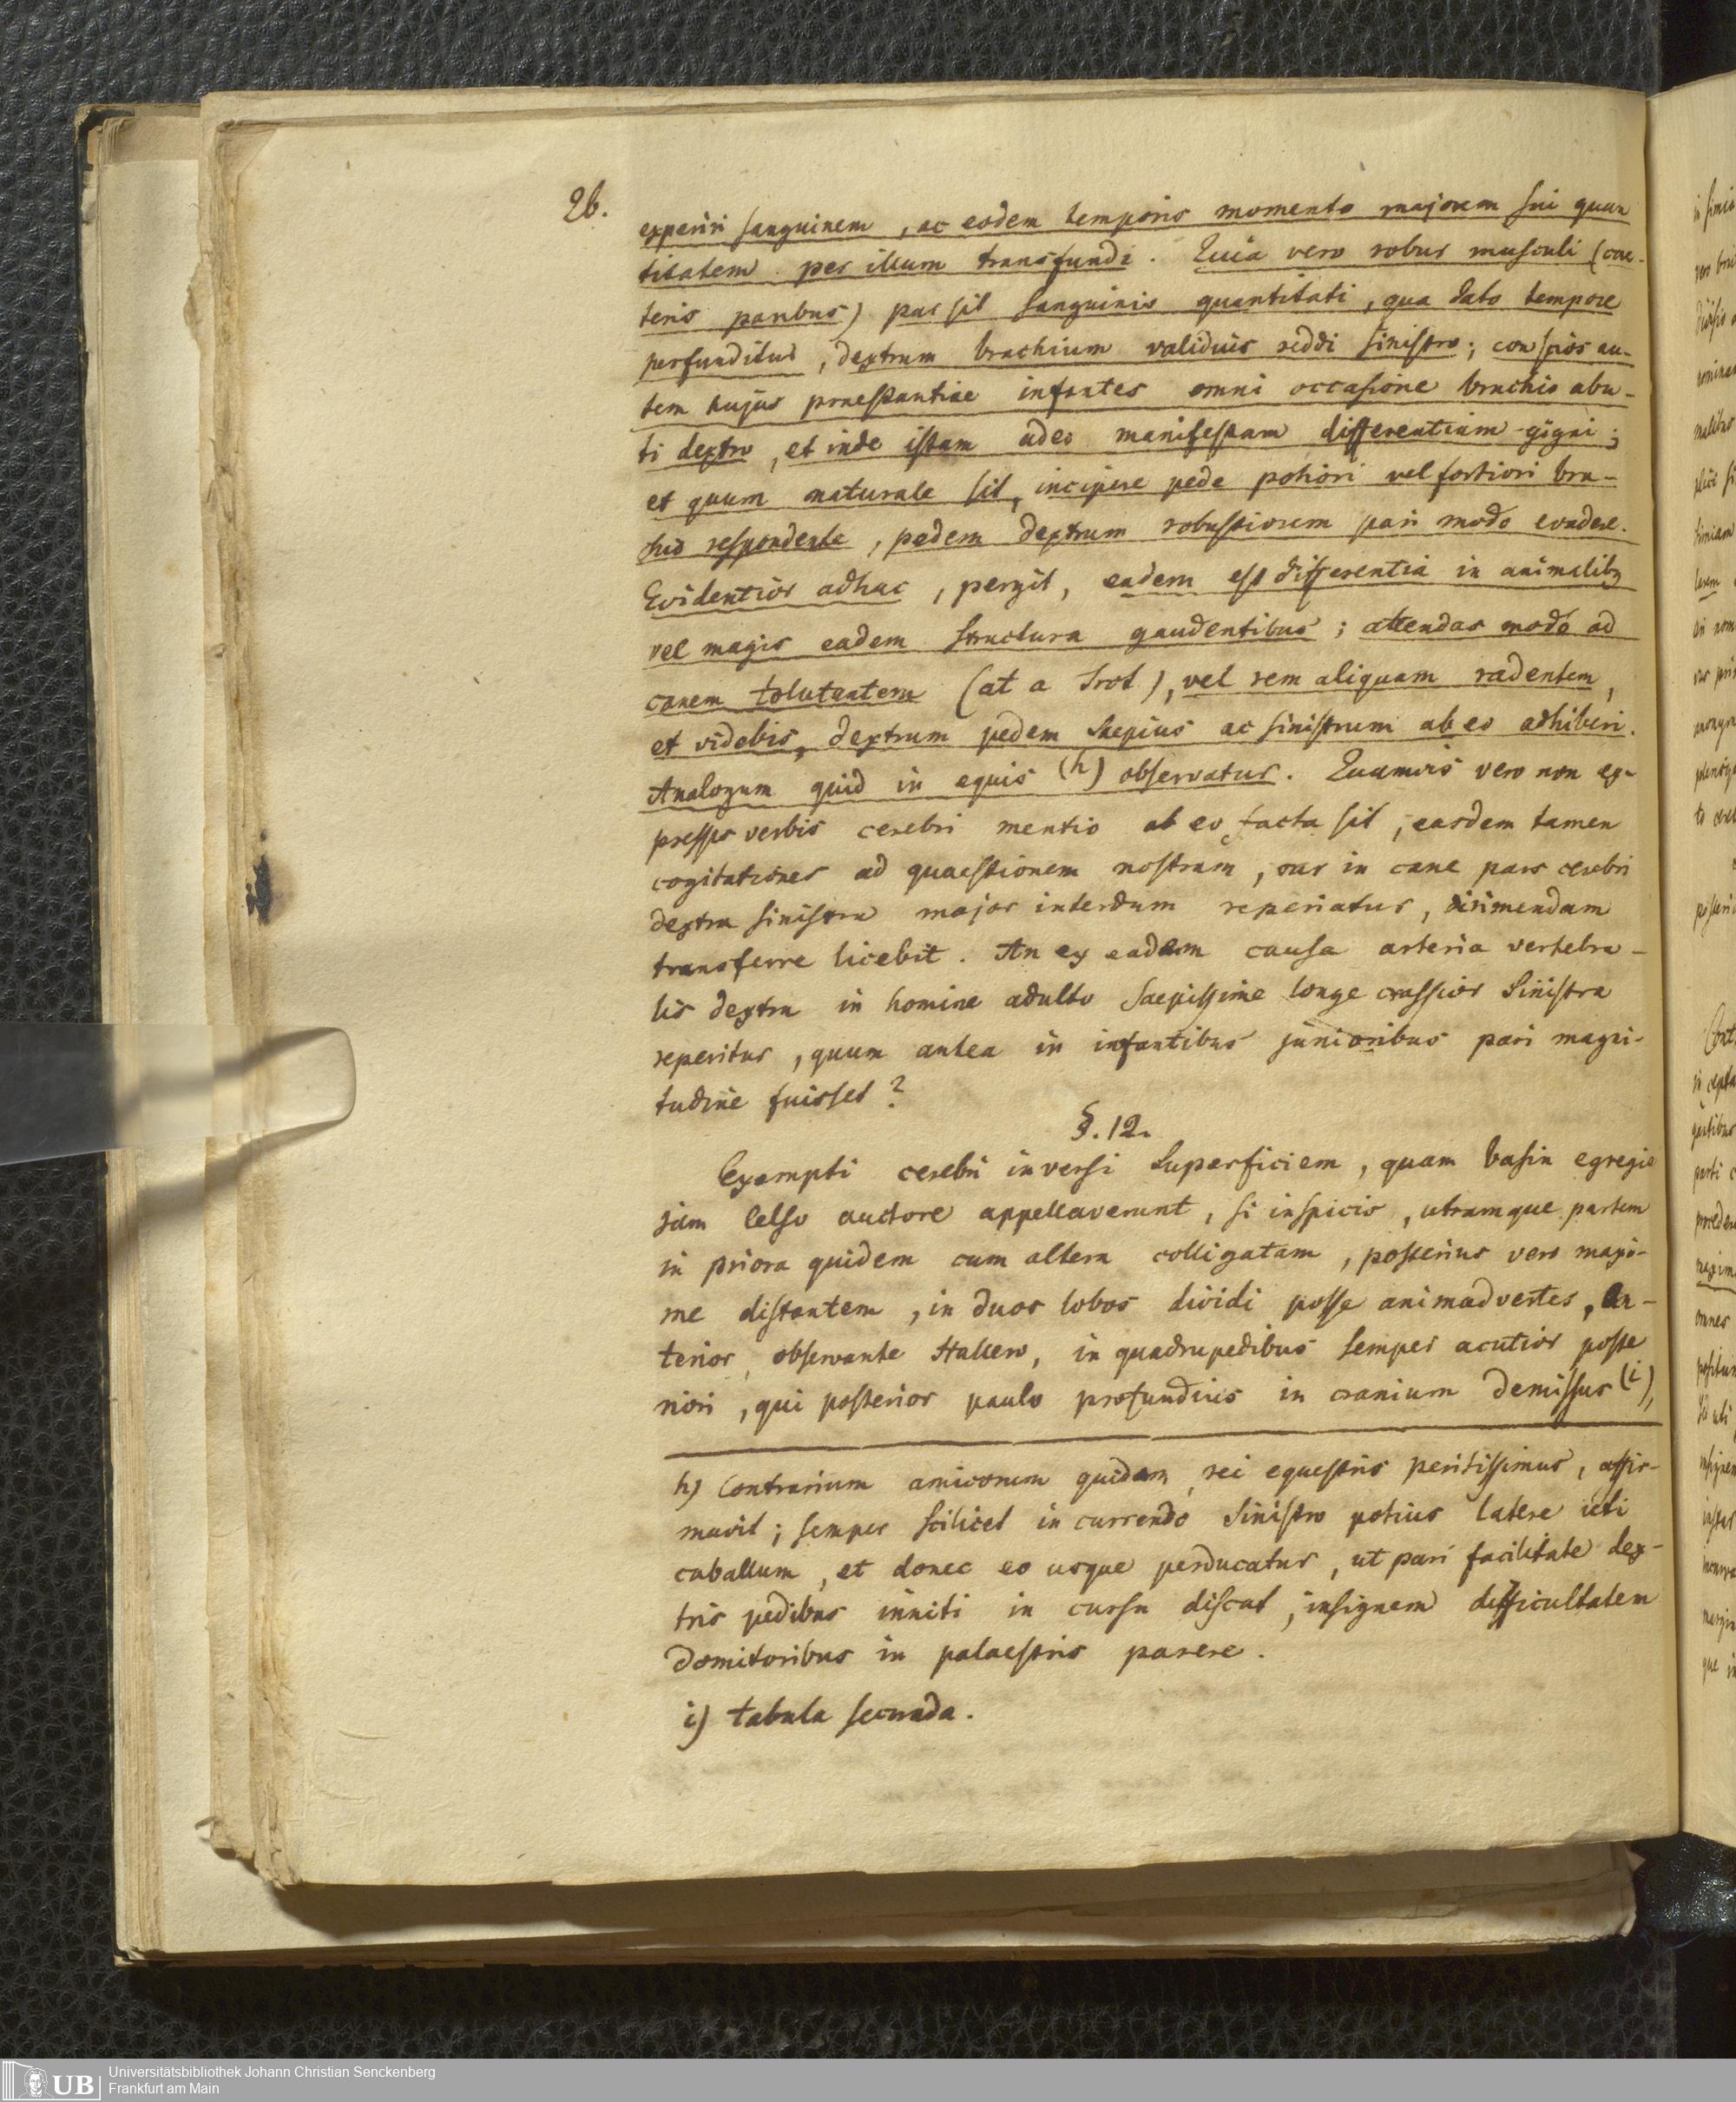 26.
experiri sanguinem, ac eodem temporis momento majorem sui quan
titatem per illum transfundi. Quia vero robur musculi (cae-
teris paribus) par sit sanguinis quantitati, qua dato tempore
perfunditur, dextrum brachium validius reddi sinistro; conscios au-
tem hujus praestantiae infantes omni occasione brachio abu-
ti dextro, et inde istam adeo manifestam differentiam gigni;
et quum naturale sit, incipere pede potiori vel fortiori bra-
chio respondente, pedem dextrum robustiorem pari modo evadere.
Evidentior adhuc, pergit, eadem est differentia in animalibq
vel magis eadem structura gaudentibus; attendas modo ad
canem tolutentem (at a trot), vel rem aliquam radentem,
et videbis, dextrum pedem saepius ac sinistrum ab eo adhiberi.
Analogum quid in equis (h) observatur. Quamvis vero non ex-
pressis verbis cerebri mentio ab eo facta sit, easdem tamen
cogitationes ad quaestionem nostram, cur in cane pars cerebri
dextra sinistra major interdum reperiatur, dirimendam
transferre licebit. An ex eadem causa arteria vertebra-
lis dextra in homine adulto saepissime longe crassior sinistra
reperitur, quum antea in infantibus junioribus pari magni-
tudine fuisset?
§. 12.
Exempti cerebri inversi superficiem, quam basin egregie
jam Celso auctore appellaverunt, si inspicis, utramque partem
in priora quidem cum altera colligatam, posterius vero maxi-
me distantem, in duos lobos dividi posse animadvertes, an-
terior, observante Hallero, in quadrupedibus semper acutior poste
riori, qui posterior paulo profundius in cranium demissus (i),
h) Contrarium amicorum quidam, rei equestris peritissimus, affir-
mavit; semper scilicet in currendo sinistro potius latere uti
caballum, et donec eo usque perducatur, ut pari facilitate dex-
tris pedibus inniti in cursu discat, insignem difficultatem
domitoribus in palaestris parere.
i) tabula secunda.
UB
Universitätsbibliothek Johann Christian Senckenberg
Frankfurt am Main